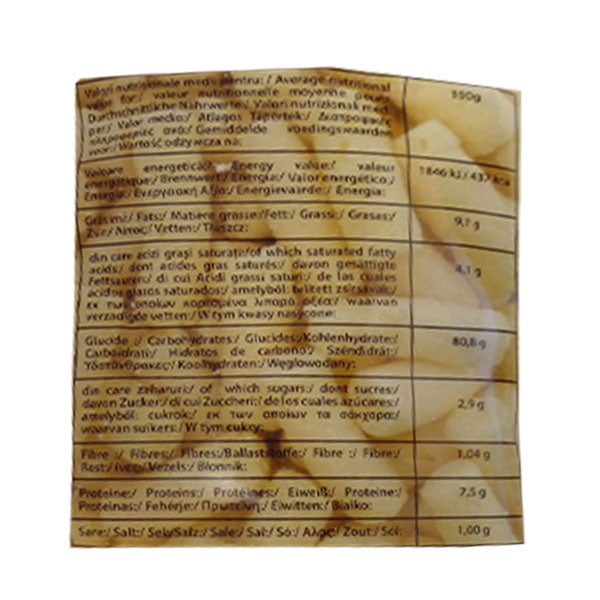 Valori nutriționale medii pentru:/ Average nutritional
value for:/ valeur nutritionnelle moyenne pour:/
Durchschnittliche Nährwerte:/ Valori nutrizionali med.
per:/ Valor medio:/ Átlagos Tápérték:/ Διατροφικές
πληροφορίες ανά:/ Gemiddelde voedingswaarden
voor:/ Wartość odżywcza na:
100g
Valoare energetică:/ Energy value:/ valeur
énergétique:/ Brennwert:/ Energia:/ Valor energético:/
Energia:/ Ενεργειακή Αξία:/ Energievaarde:/ Energia:
1846 kJ / 437 kcal
Grăsimi:/ Fats:/ Matière grasse:/Fett:/ Grassi:/ Grasas:/
Zsír:/ Λίπος:/ Vetten:/ Tłuszcz:
9,1 g
din care acizi grași saturați:/of which saturated fatty
acids:/ dont acides gras saturés:/ davon gesättigte
Fettsäuren:/ di cui Acidi grassi saturi:/ de las cuales
ácidos grasos saturados:/ amelyből: telített zsírsavak:/
εκ των οποίων κορεσμένα λιπαρά οξέα:/ waarvan
verzadigde vetten:/ W tym kwasy nasycone:
4,1 g
Glucide :/ Carbohydrates:/ Glucides:/Kohlenhydrate:/
Carboidrati:/ Hidratos de carbono:/ Szénhidrát:/
Υδατάνθρακες:/ Koolhydraten:/ Węglowodany:
80,8 g
din care zaharuri:/ of which sugars:/ dont sucres:/
davon Zucker:/ di cui Zuccheri:/ de los cuales azúcares:/
amelyből: cukrok:/ εκ των οποίων τα σάκχαρα:/
waarvan suikers:/ W tym cukry:
2,9 g
Fibre :/ Fibres:/ Fibres:/Ballaststoffe:/ Fibre :/ Fibre:/
Rost:/ ίνες:/ Vezels:/ Błonnik:
1,04 g
Proteine:/ Proteins:/ Protéines:/ Eiweiß:/ Proteine:/
Proteinas:/ Fehérje:/ Πρωτεΐνη:/ Eiwitten:/ Białko:
7,5 g
Sare:/ Salt:/ Sel:/Salz:/ Sale:/ Sal:/ Só:/ Αλας:/ Zout:/ Sól:
1,00 g